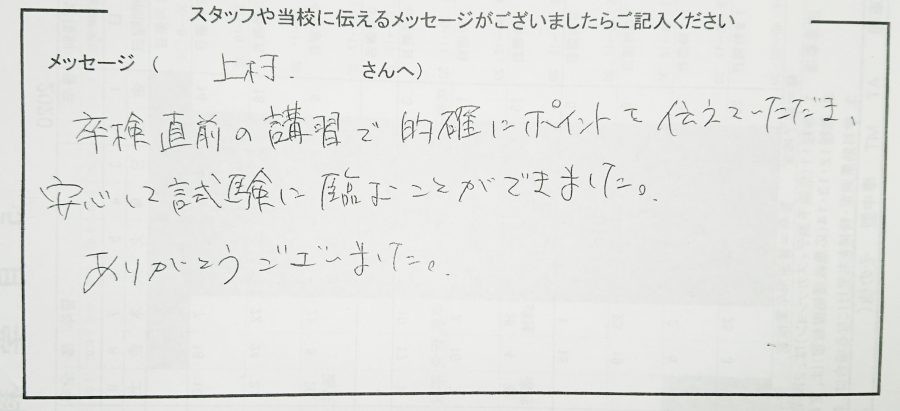 スタッフや当校に伝えるメッセージがございましたらご記入ください
メッセージ（ 上村. さんへ）
卒検直前の講習で的確にポイントを伝えていただき、
安心して試験に臨むことができました。
ありがとうございました。